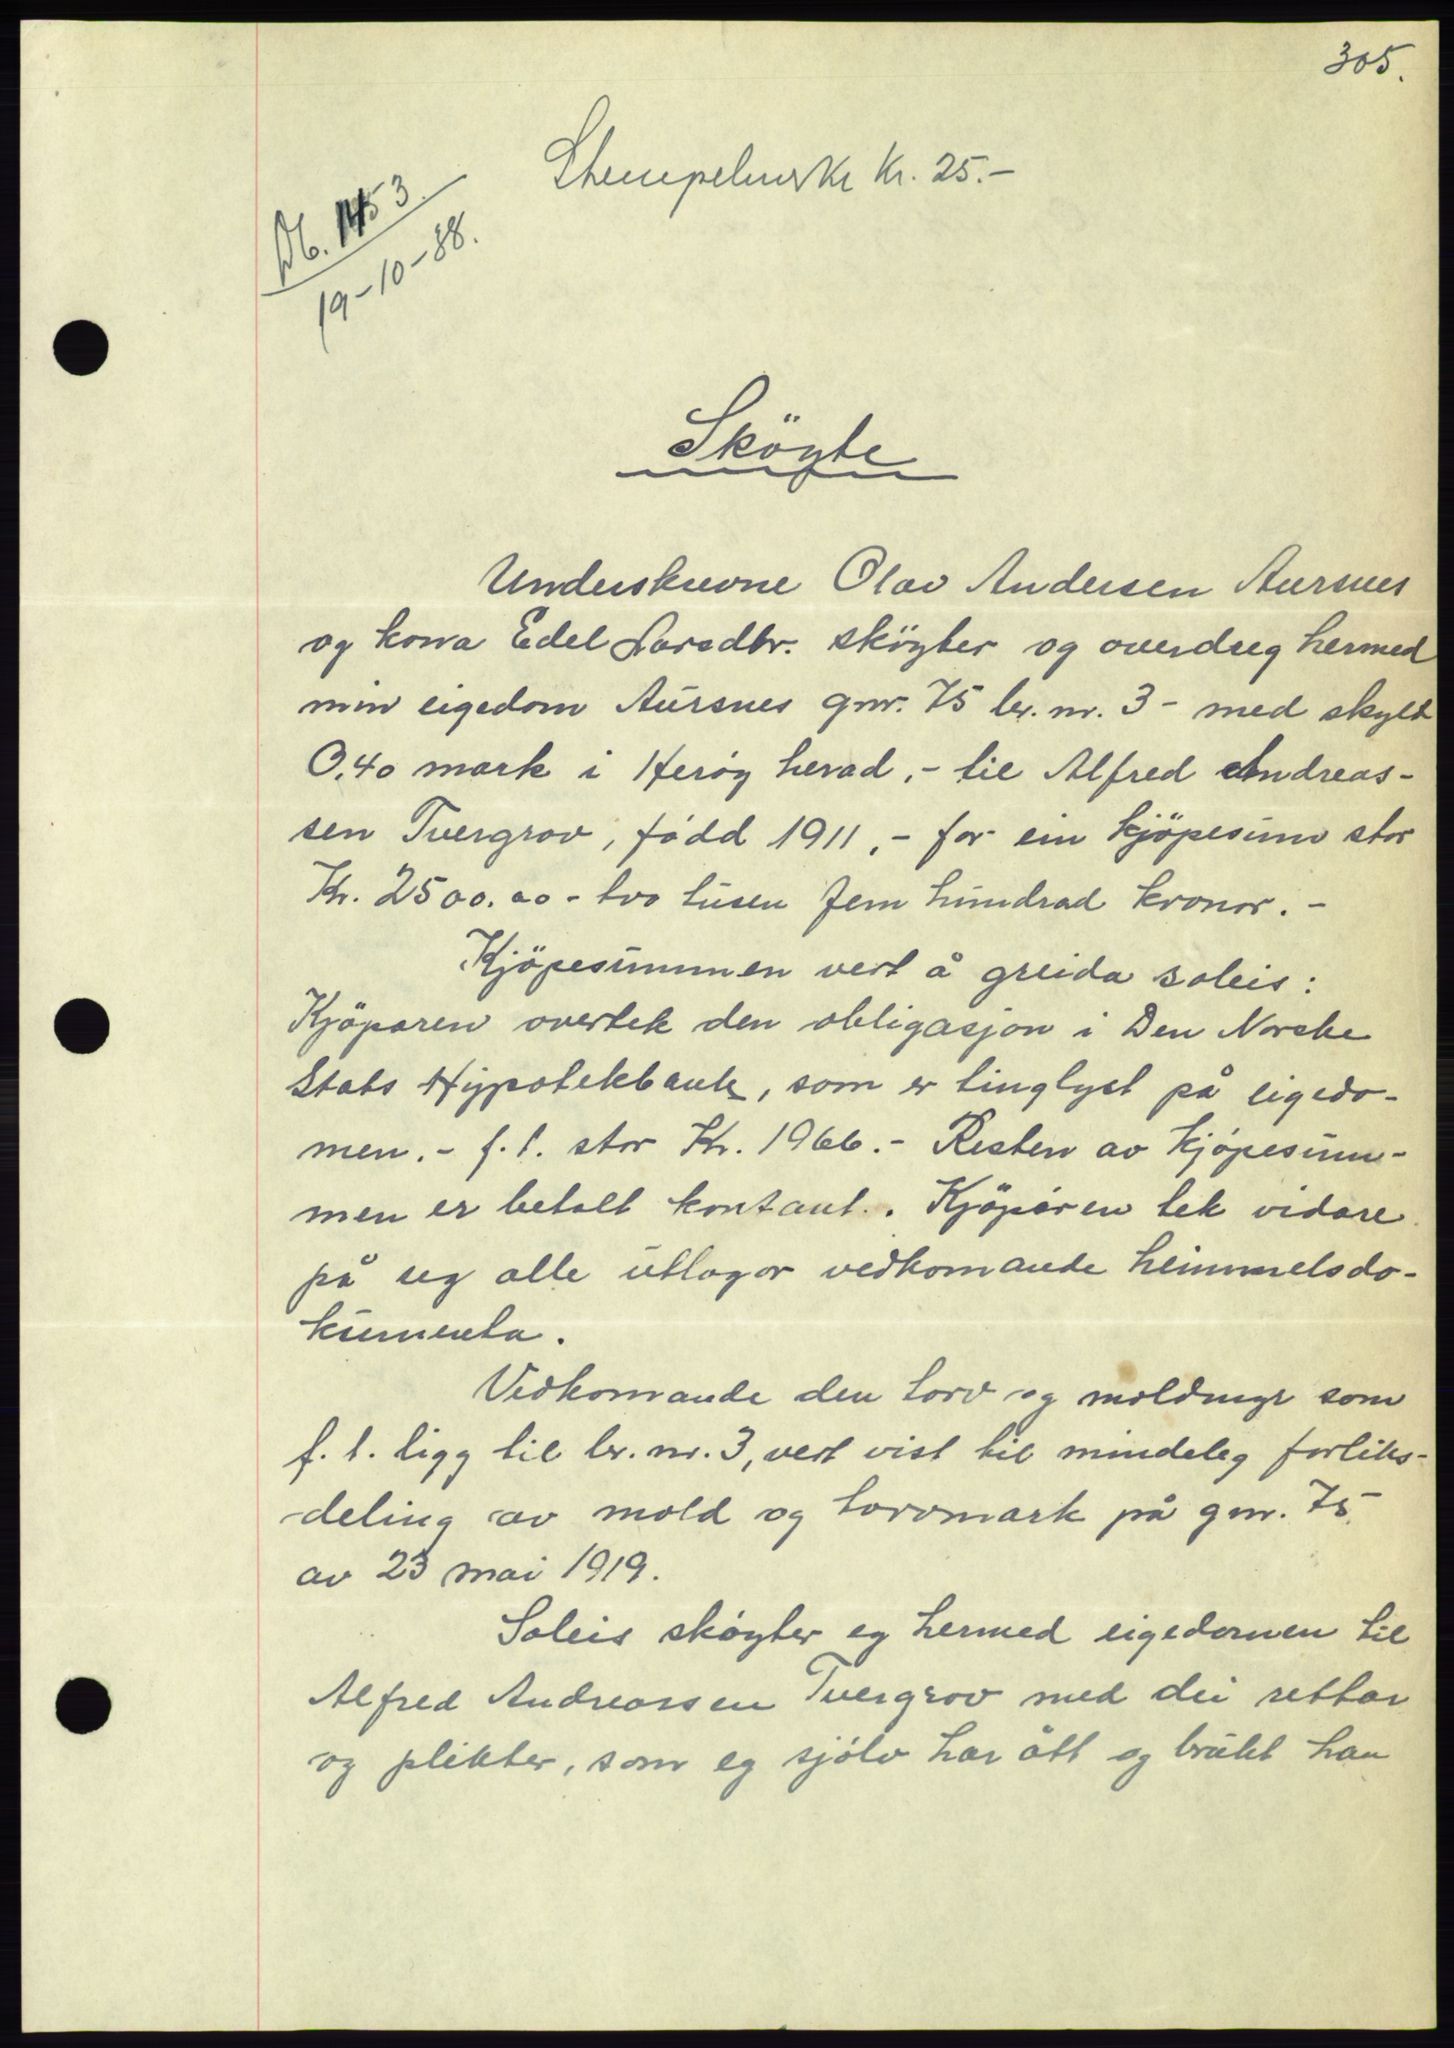 305.
Stempelmerke kr. 25.-
Db. 1453.
19-10-38.
Sköyte
Underskrevne Olav Andersen Aursnes
og kona Edel Larsdtr. sköyter og overdreg hermed
min eigedom Aursnes gnr. 75 br. nr. 3 - med skyld
0.40 mark i Heröy herad, - til Alfred Andreas-
sen Tvergrov, född 1911, - for ein kjöpesum stor
Kr. 2500.00 - tvo tusen fem hundrad kronor. -
Kjöpesummen vert å greida soleis:
Kjöparen overtek den obligasjon i Den Norske
Stats Hypotekbank, som er tinglyst på eigedo-
men. - f. t. stor Kr. 1966.- Resten av kjöpesum-
men er betalt kontant. Kjöparen tek vidare
på seg alle utlagor vedkomande heimmelsdo-
kumenta.
Vedkomande den torv og moldmyr som
f. t. ligg til br. nr. 3, vert vist til mindeleg forliks-
-deling av mold og torvmark på gnr. 75
av 23 mai 1919.
Soleis sköyter eg hermed eigedomen til
Alfred Andreassen Tvergrov med dei rettar
og plikter, som eg sjölv har ått og brukt han